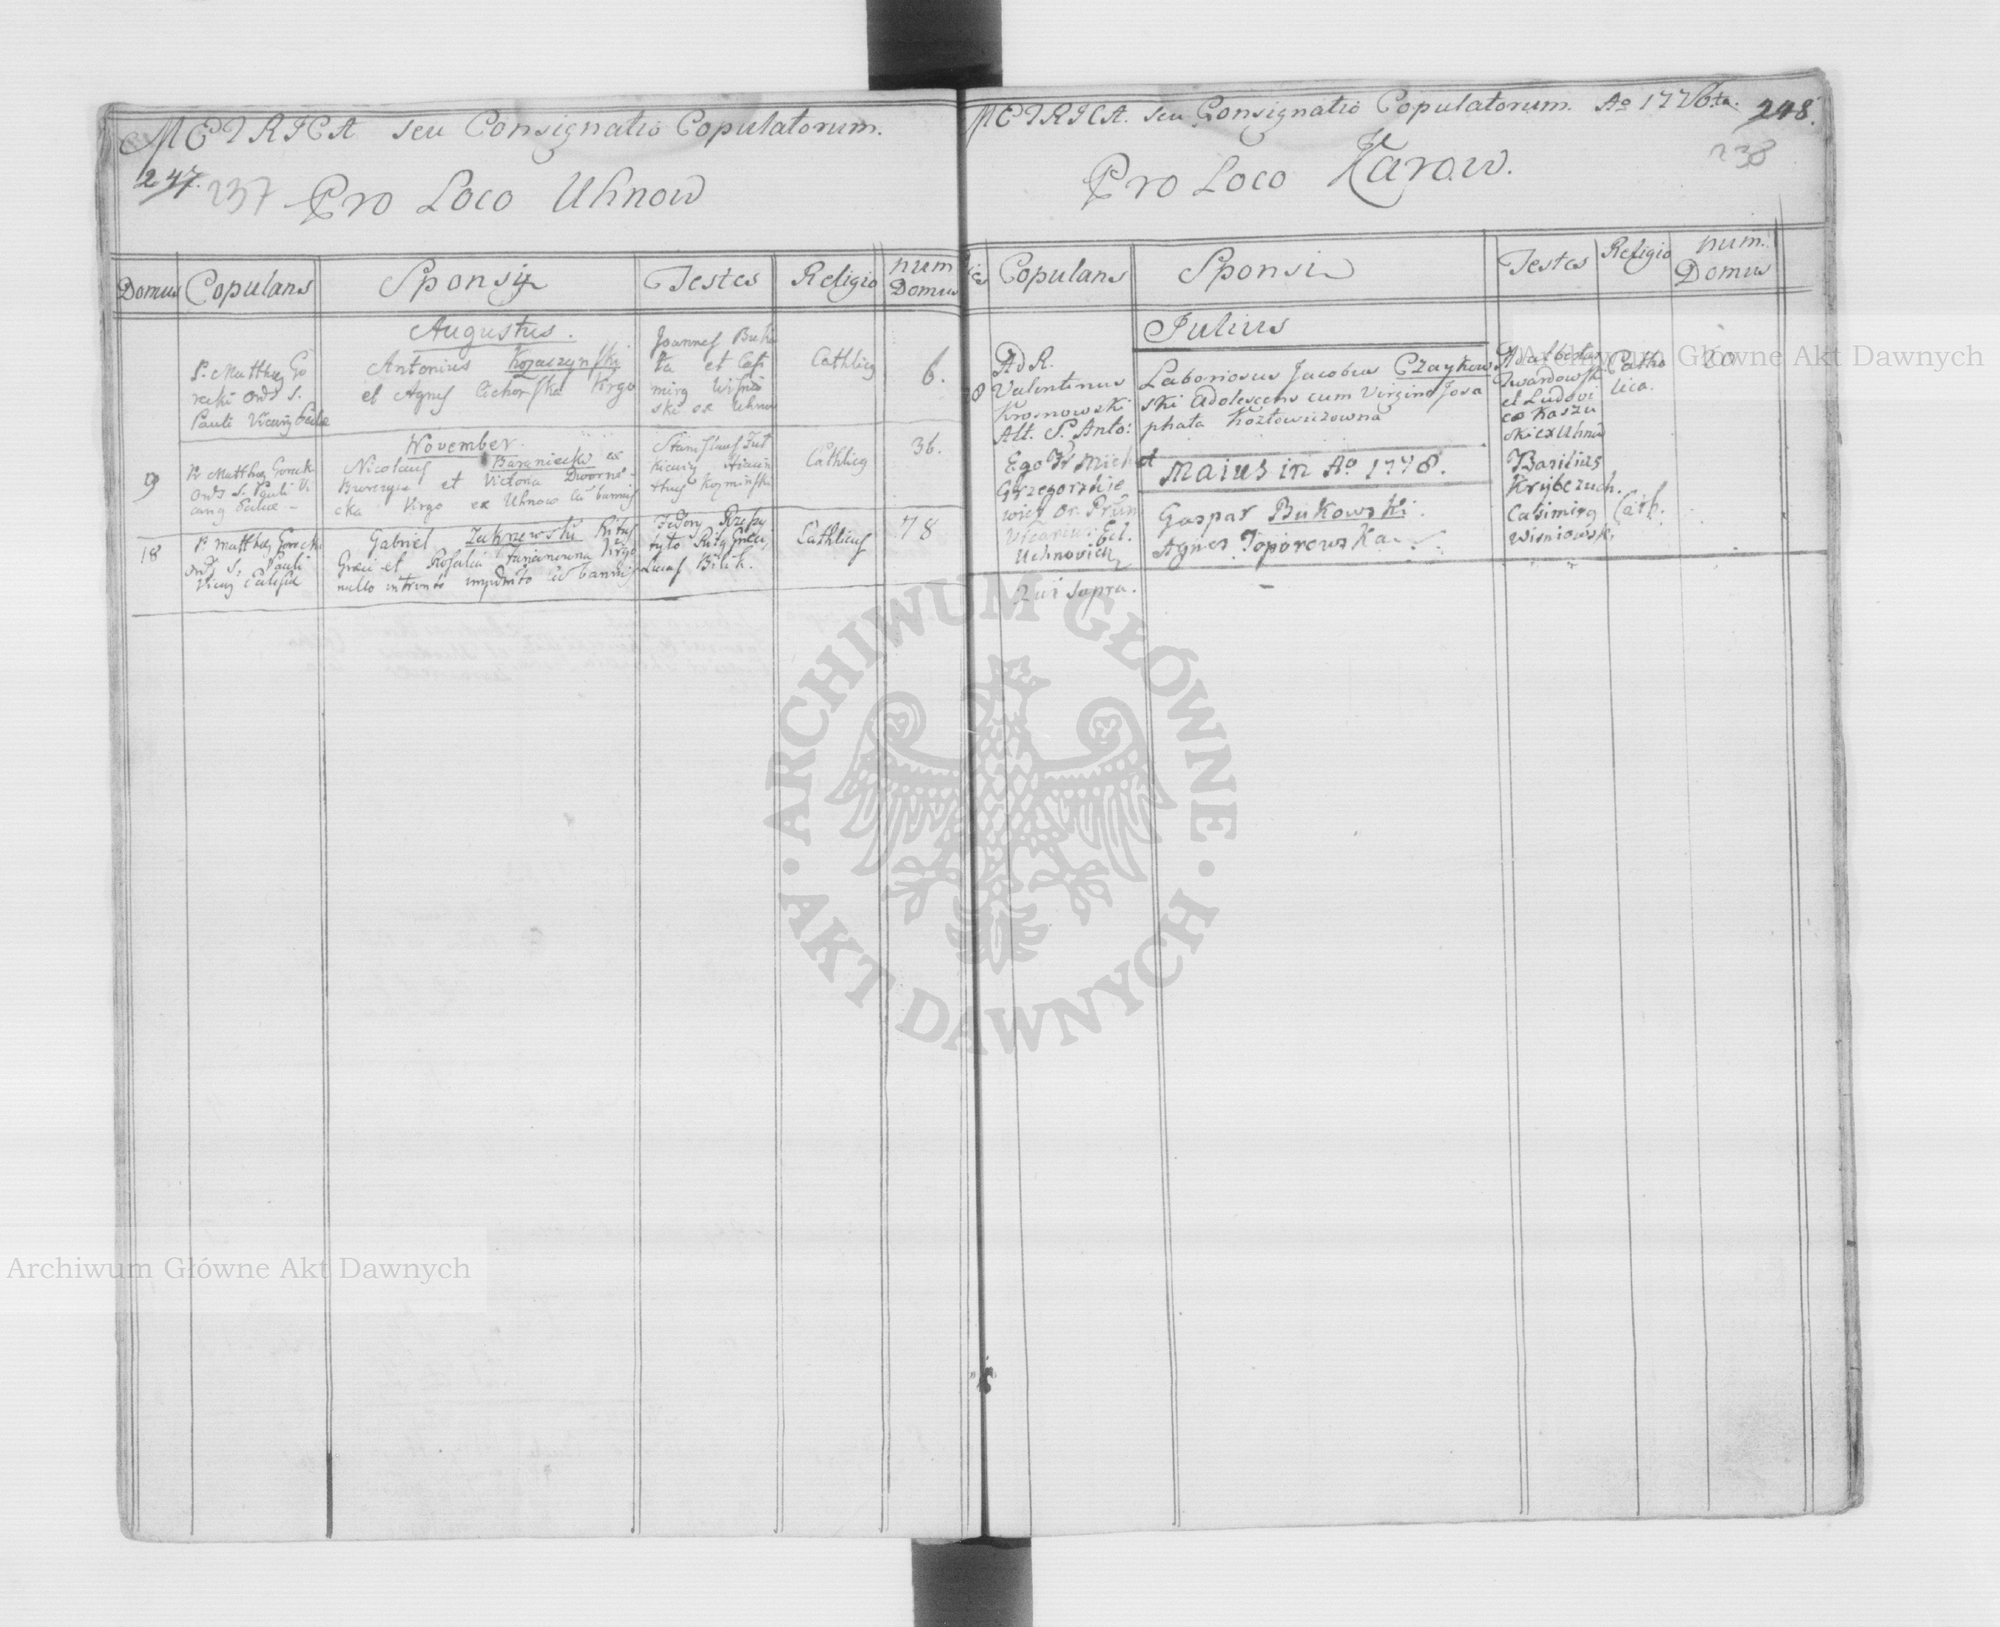 METRICA seu Consignatio Copulatorum.
247. 237 Pro Loco Uhnow
Domus Copulans Sponsi Testes Religio num Domus
Augustus.
P. Mattheg Go
recki Ords S.
Pauli
Antonius Kozaszynski
et Agnes Cichorska Virgo
Joannes Buko
ta et Cas
mirg Wisnio
ski ex Uhnow
Cathlicg
6.
November.
9
P. Mattheg Gorecki
Ords S. Pauli Vi
Nicolaus Baraniecki ex
et Victoria Dworni
cka Virgo ex Uhnow
Stanislaus
kiewicz Hiacin
thus Kozminski
Cathlicg
36.
18
P. Mattheg Gorecki
Ords S. Pauli
Gabriel Zukrzewski Ritus
Graeci et Rosalia Virgo
nullo
Fedory
Lucas Bilik.
Cathlicus
78
METRICA. seu Consignatio Copulatorum. Ao 1776ta. 248.
238
Pro Loco Karow.
Copulans Sponsi Testes Religio num. Domus
Julius
8
AdR.
Valentinus
Krosnowski
Alt. S. Anto:
Laboriosus Jacobus Czaykow
ski Adolescens cum Virgine Josa
phata Kozłowiczowna
Adalbertus
Twardowski
et Ludovi
co Kaszu
ski ex Uhnow
Catho
lica.
20
Maius in Ao 1778.
Ego Fr Mich
Grzegorzkie
wicz Or. Præ
Vicarius Ecl.
Uchnovien
Gaspar Bukowski.
Agnes Toporowska
Basilius
Krybczuch.
Casimirg
Wisniowski
Cath.
Qui supra. -
ARCHIWUM GŁÓWNE
AKT DAWNYCH
Archiwum Główne Akt Dawnych
Archiwum Główne Akt Dawnych